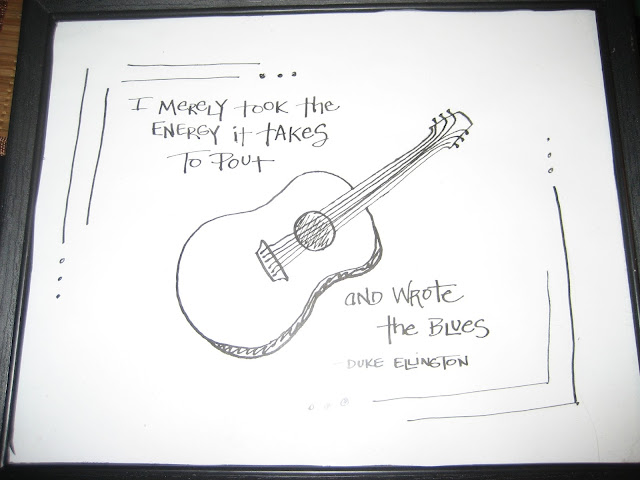 I MERELY took the
ENERGY it tAKES
TO Pout
AND WROTE
the BLUES
-DUKE ELLINGTON